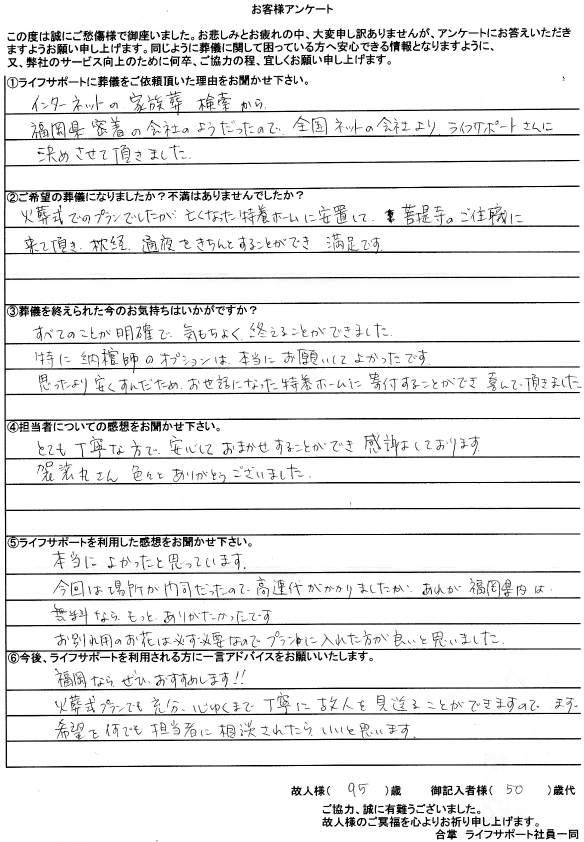 お客様アンケート
この度は誠にご愁傷様で御座いました。お悲しみとお疲れの中、大変申し訳ありませんが、アンケートにお答えいただき
ますようお願い申し上げます。同じように葬儀に関して困っている方へ安心できる情報となりますように、
又、弊社のサービス向上のために何卒、ご協力の程、宜しくお願い申し上げます。
①ライフサポートに葬儀をご依頼頂いた理由をお聞かせ下さい。
インターネットの 家族葬 検索から.
福岡県 密着の会社のようだったので、全国ネットの会社より、ライフサポートさんに
決めさせて頂きました.
②ご希望の葬儀になりましたか？不満はありませんでしたか？
火葬式でのプランでしたが 亡くなった特養ホームに安置して、菩提寺のご住職に
来て頂き、枕経、通夜をきちんとすることができ 満足です.
③葬儀を終えられた今のお気持ちはいかがですか？
すべてのことが明確で、気もちよく、終えることができました.
特に 納棺師のオプションは、本当にお願いしてよかったです.
思ったより安くすんだため、お世話になった特養ホームに 寄付することができ 喜んで頂きました
④担当者についての感想をお聞かせ下さい。
とても丁寧な方で、安心しておまかせすることができ 感謝しております
袈裟丸さん 色々とありがとうございました.
⑤ライフサポートを利用した感想をお聞かせ下さい。
本当に よかったと思っています.
今回は場所が門司だったので、高速代がかかりましたが、あれが福岡県内は、
無料なら、もっと、ありがたかったです
お別れ用のお花は必ず必要なのでプラン中に入れた方が良いと思いました.
⑥今後、ライフサポートを利用される方に一言アドバイスをお願いいたします。
福岡なら、ぜひ、おすすめします!!
火葬式プランでも 充分、心ゆくまで 丁寧に 故人を見送ることができますので、まず
希望を何でも 担当者に相談されたら、いいと思います.
故人様（ 95 ）歳 御記入者様（ 50 ）歳代
ご協力、誠に有難うございました。
故人様のご冥福を心よりお祈り申し上げます。
合掌 ライフサポート社員一同